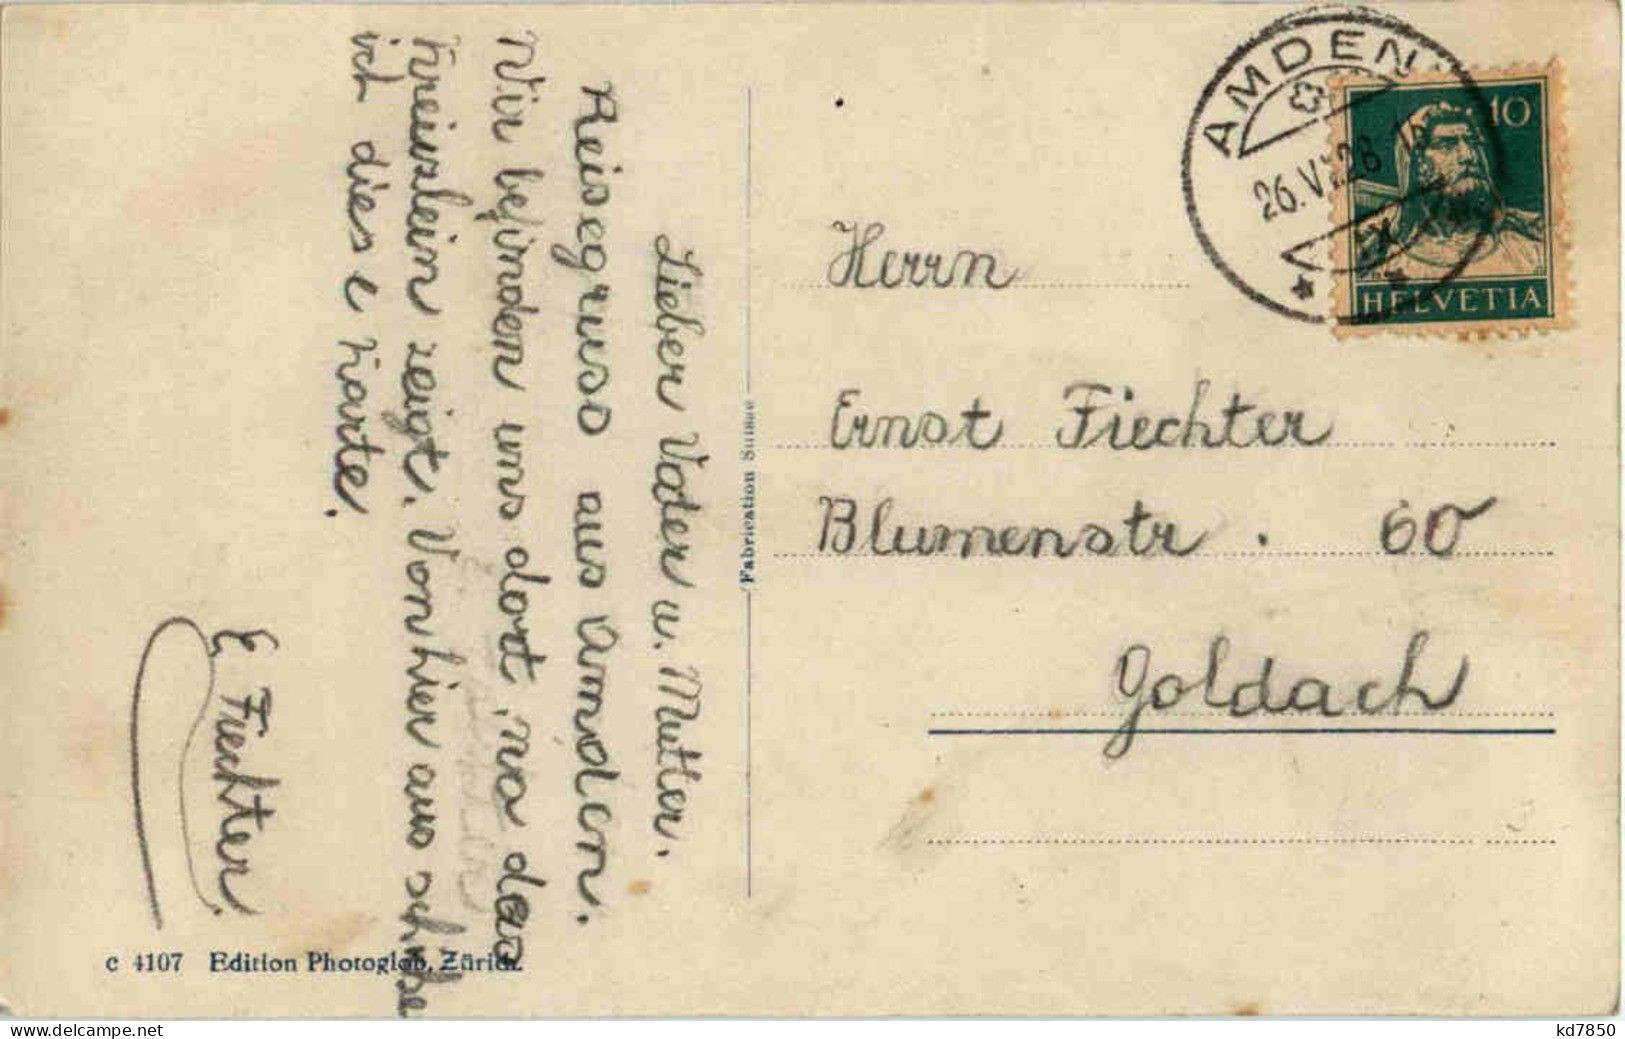 Lieber Vater u. Mutter.
Reisegruss aus Amden.
Wir befinden uns dort, wo das
Kreuzlein zeigt. Von hier aus schreibe
ich diese Karte.
E Fiechter.
c 4107 Edition Photoglob, Zürich.
Fabrication Suisse
AMDEN
26.VI.28
10
HELVETIA
Herrn
Ernst Fiechter
Blumenstr. 60
Goldach
kd7850